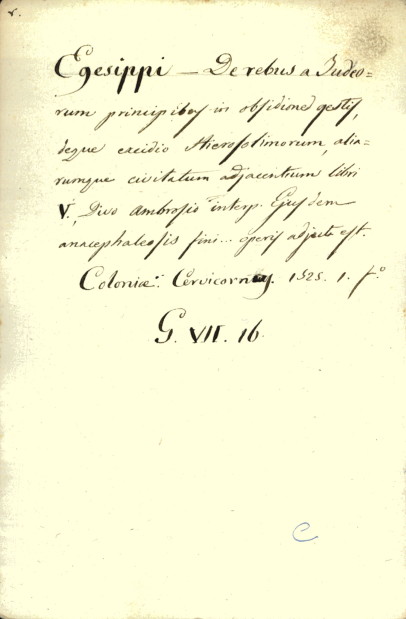 r.
Egesippi — De rebus a Judeo=
rum principibus in obsidione gestis,
deque excidio Hierosolimorum, alia-
rumque civitatum adjacentium libri
V, Divo Ambrosio interp. Ejusdem
anacephaleosis fini... operis adjecta est.
Coloniæ. Cervicornus. 1525. 1. fo.
G. VII. 16.
C